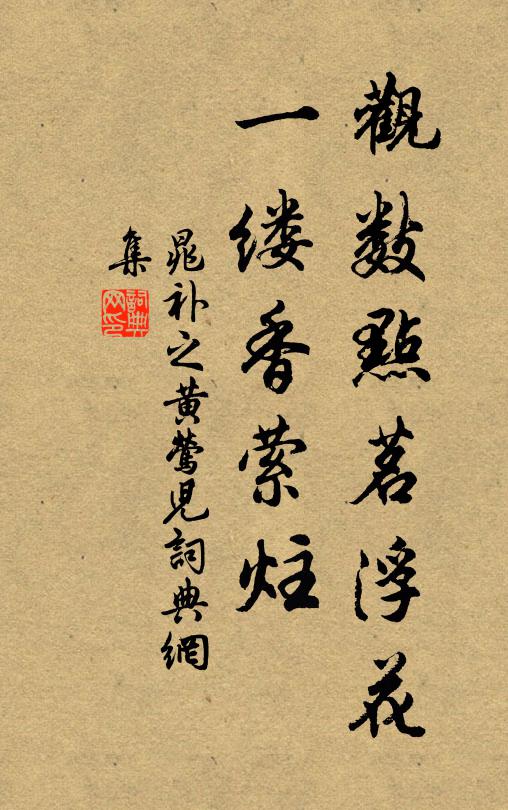 觀數點茗浮花
一缕香萦炷
晁补之黄莺儿詞典網
集
詞典
网印